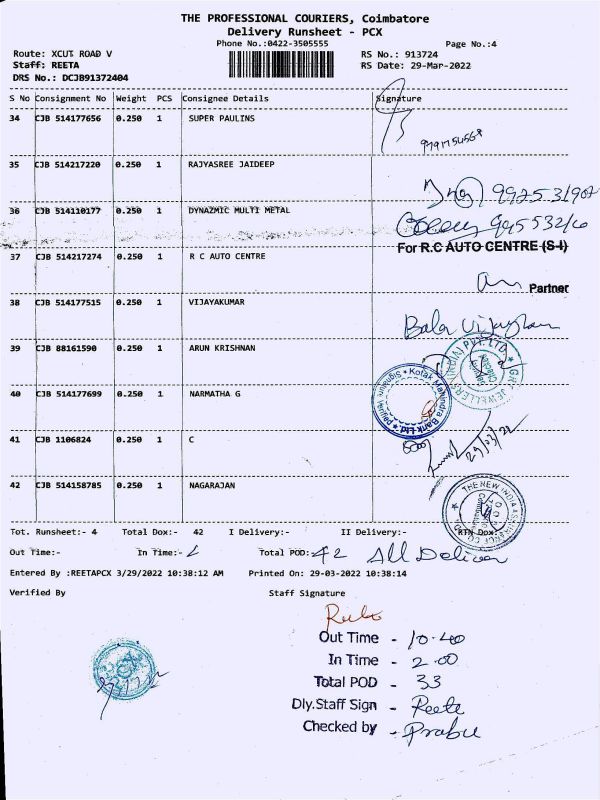 THE PROFESSIONAL COURIERS, Coimbatore
Delivery Runsheet - PCX
Phone No.:0422-3505555
Page No.:4
Route: XCUT ROAD V
RS No.: 913724
Staff: REETA
RS Date: 29-Mar-2022
DRS No.: DCJB91372404
S No Consignment No Weight PCS Consignee Details Signature
34 CJB 514177656 0.250 1 SUPER PAULINS
35 CJB 514217220 0.250 1 RAJYASREE JAIDEEP
36 CJB 514110177 0.250 1 DYNAZMIC MULTI METAL
For R.C AUTO CENTRE (S-I)
37 CJB 514217274 0.250 1 R C AUTO CENTRE
Partner
38 CJB 514177515 0.250 1 VIJAYAKUMAR
Bala
39 CJB 88161590 0.250 1 ARUN KRISHNAN
40 CJB 514177699 0.250 1 NARMATHA G
Kotak Mahindra Bank Ltd
41 CJB 1106824 0.250 1 C
29/03/22
42 CJB 514158785 0.250 1 NAGARAJAN
THE NEW INDIA ASSURANCE CO
Tot. Runsheet:- 4 Total Dox:- 42 I Delivery:- II Delivery:- RTN Dox:
Out Time:- In Time:- Total POD: 42 All Deliver
Entered By :REETAPCX 3/29/2022 10:38:12 AM Printed On: 29-03-2022 10:38:14
Verified By Staff Signature
Out Time - 10.40
In Time - 2.00
Total POD - 33
Dly.Staff Sign - Reeta
Checked by - Prabu